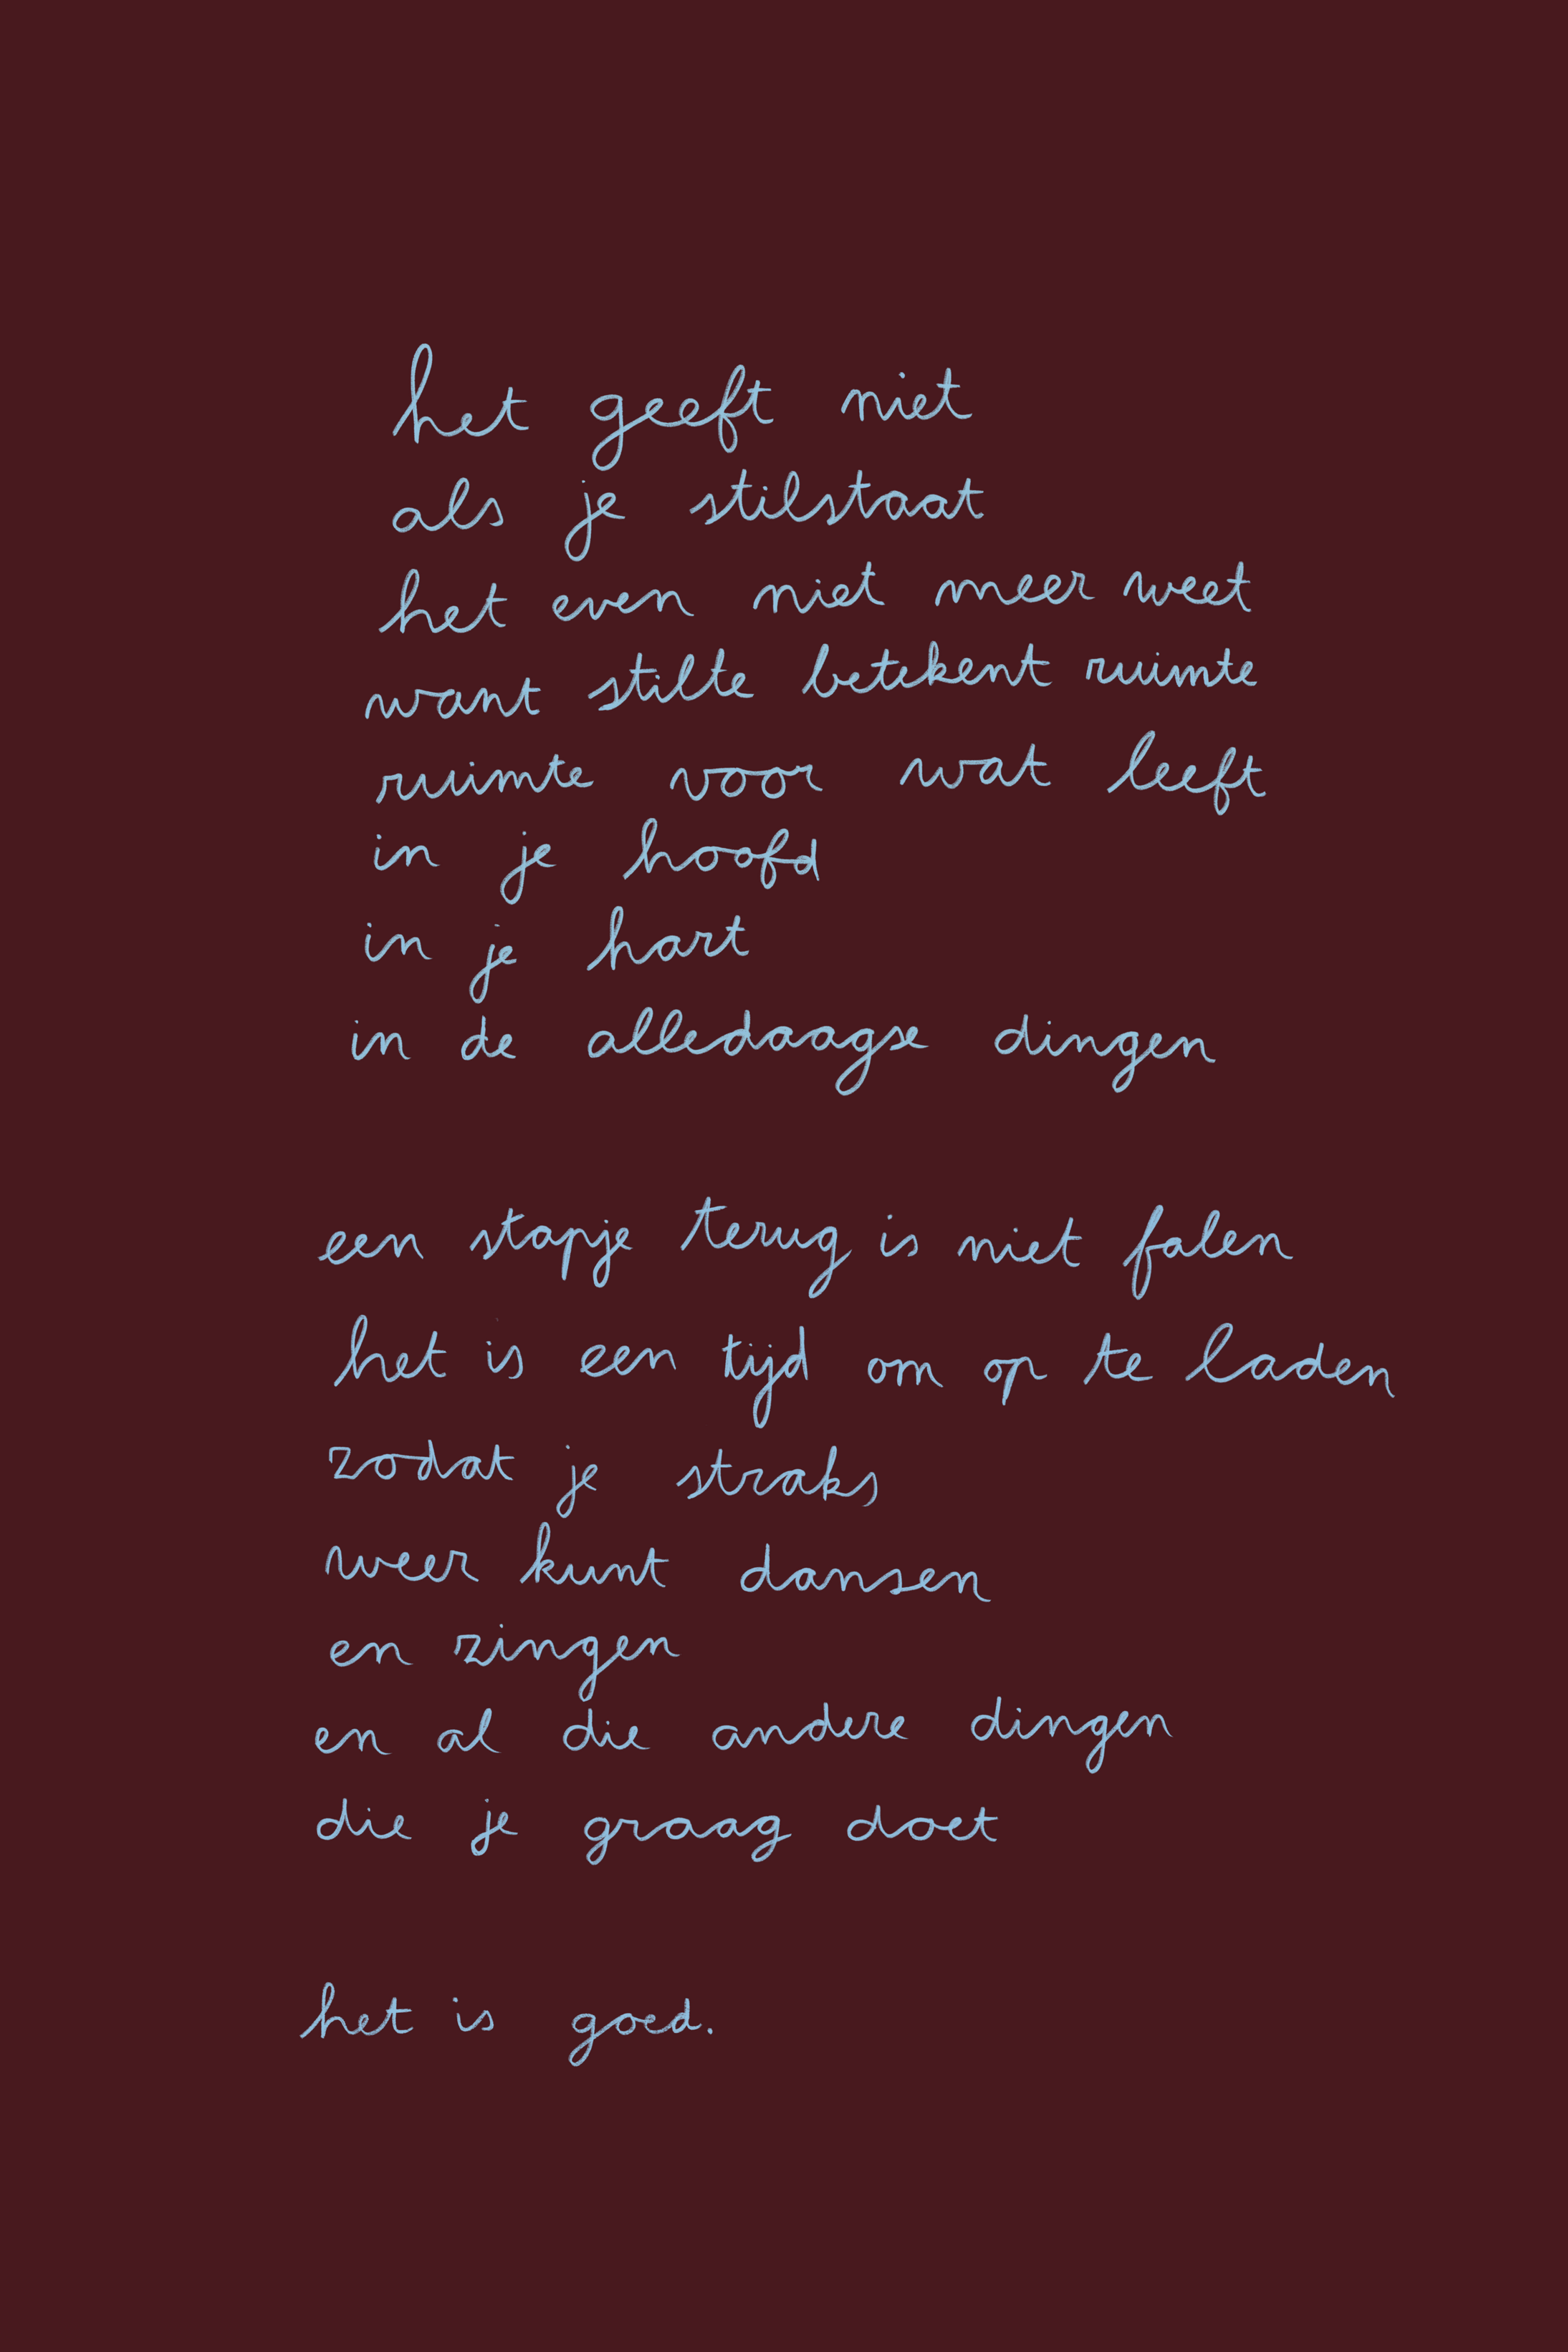 het geeft niet
als je stilstaat
het even niet meer weet
want stilte betekent ruimte
ruimte voor wat leeft
in je hoofd
in je hart
in de alledaagse dingen
een stapje terug is niet falen
het is een tijd om op te laden
zodat je straks
weer kunt dansen
en zingen
en al die andere dingen
die je graag doet
het is goed.